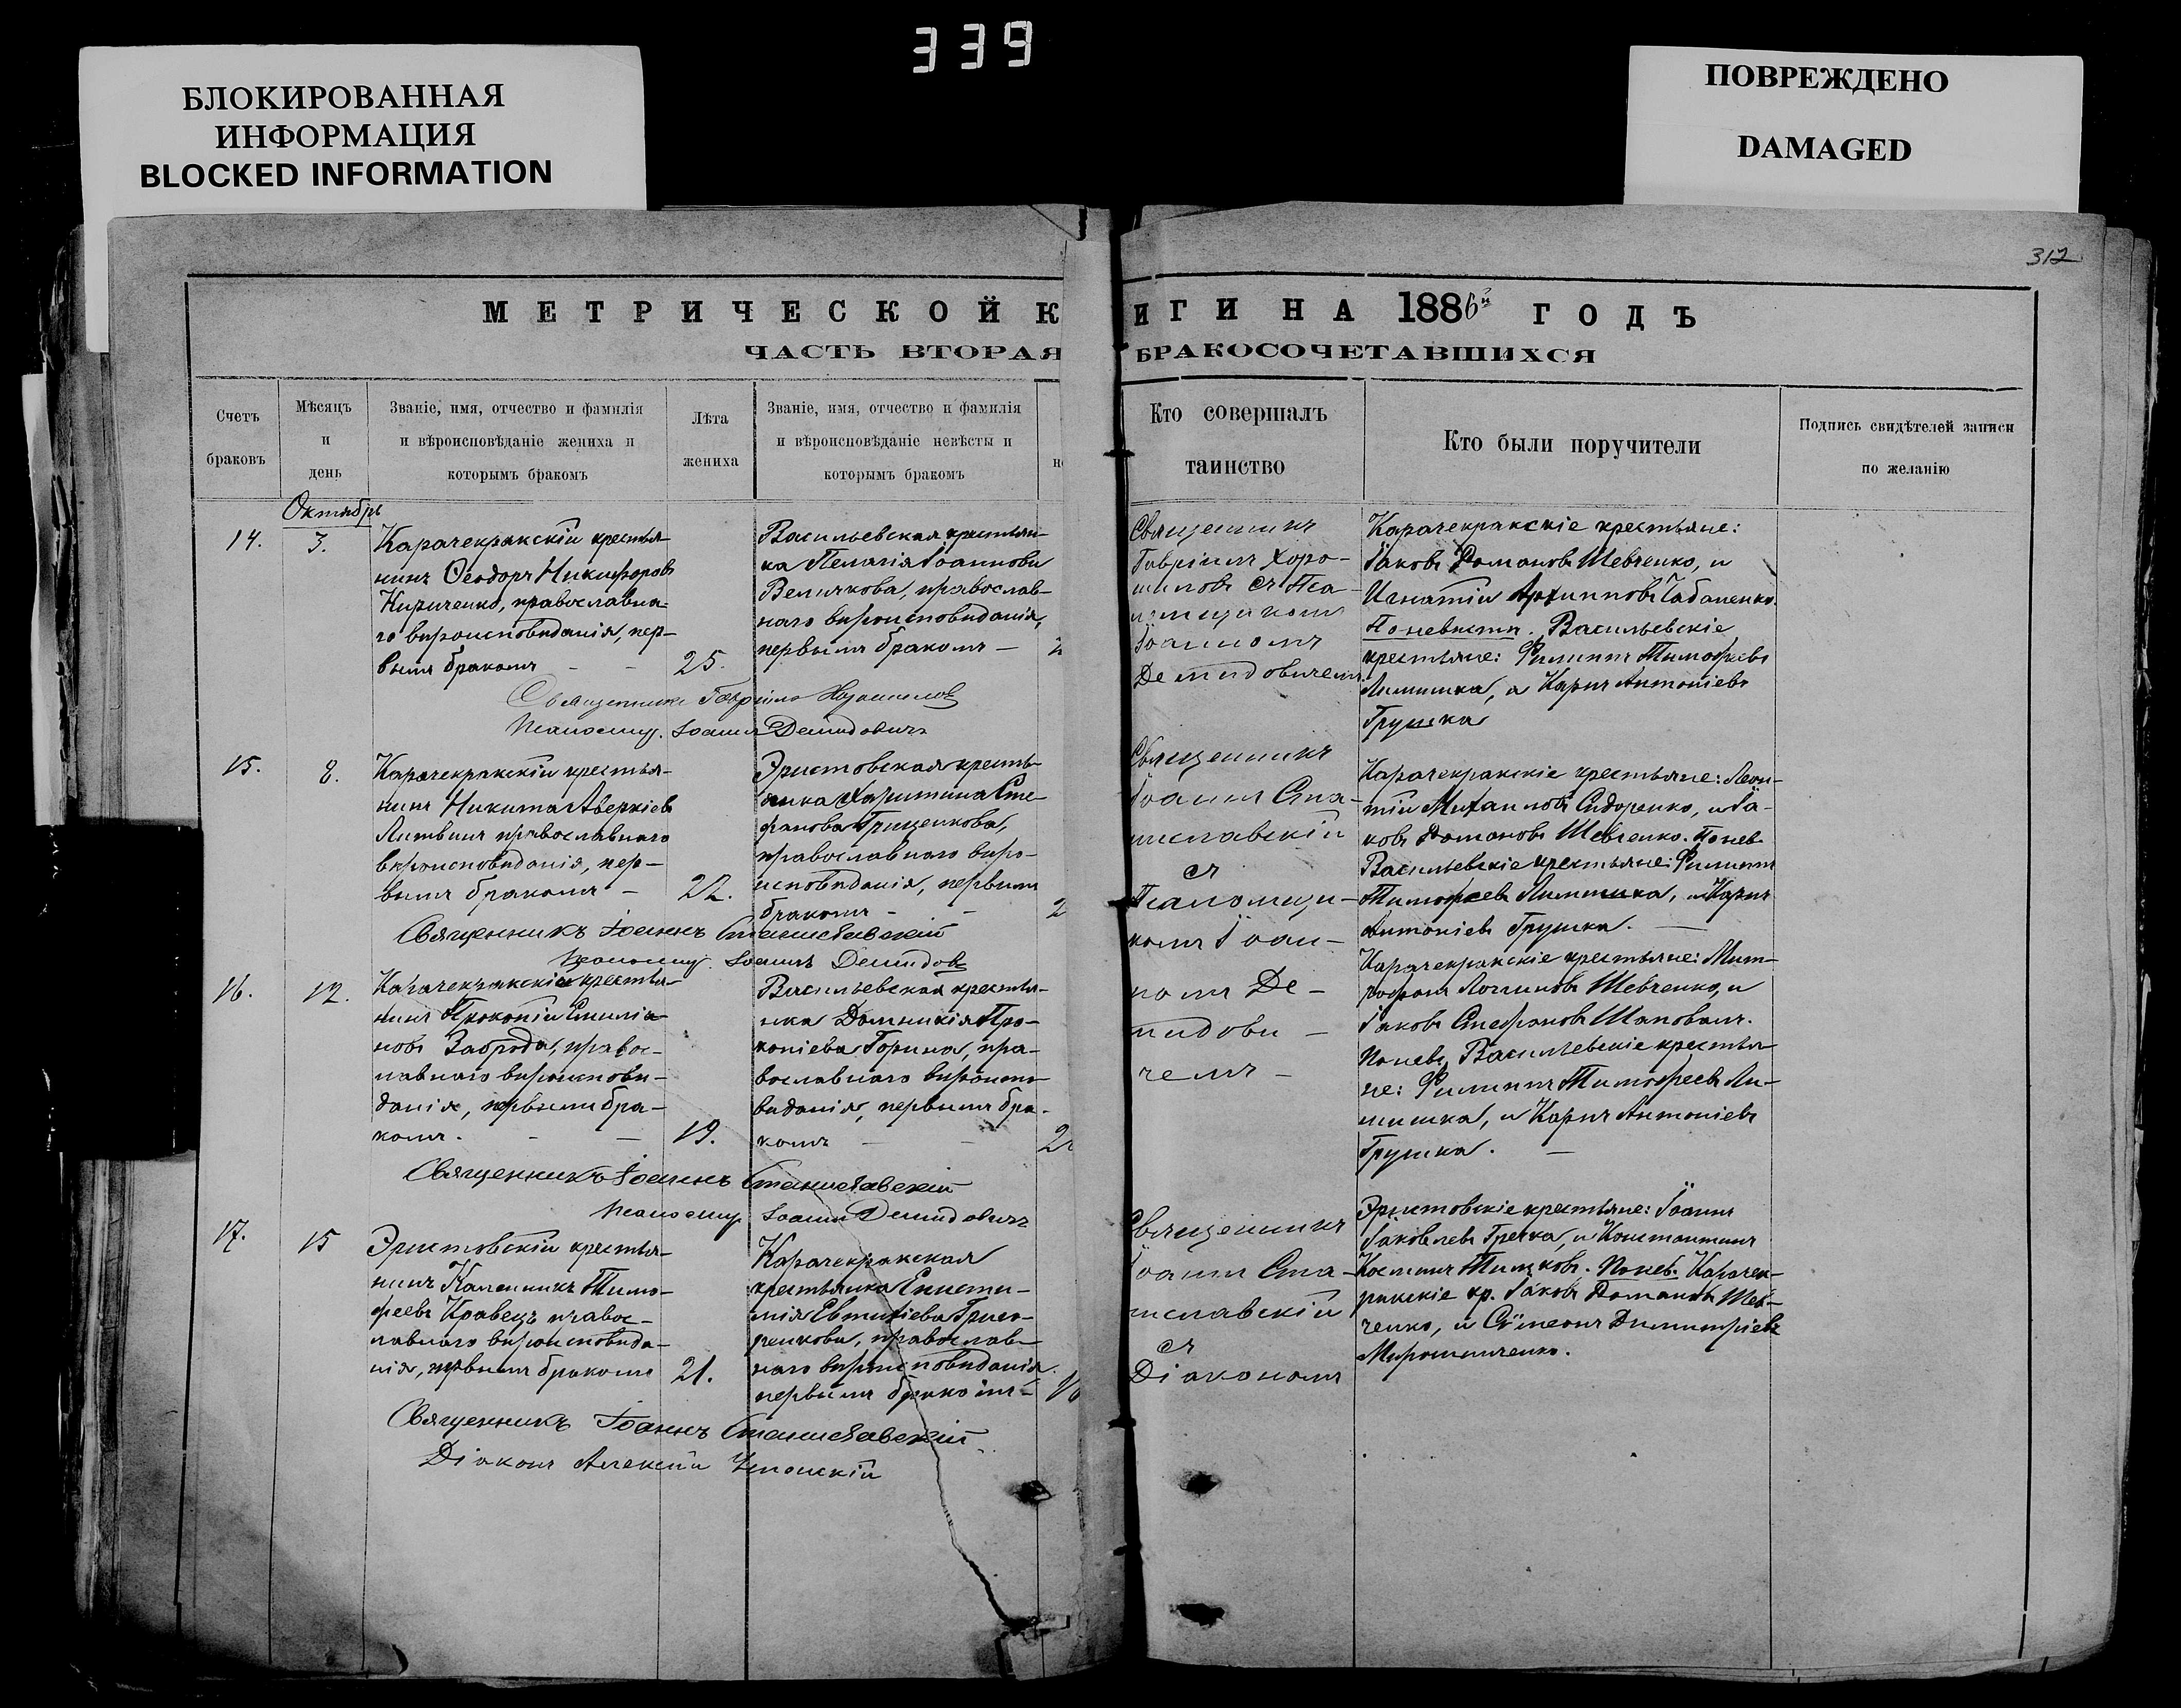 339
БЛОКИРОВАННАЯ
ИНФОРМАЦИЯ
BLOCKED INFORMATION
ПОВРЕЖДЕНО
DAMAGED
312
МЕТРИЧЕСКОЙ К
ИГИ НА 1886й ГОДЪ
ЧАСТЬ ВТОРАЯ
БРАКОСОЧЕТАВШИХСЯ
Счетъ
браковъ
Мѣсяцъ
и
день
Званіе, имя, отчество и фамилія
и вѣроисповѣданіе жениха и
которымъ бракомъ
Лѣта
жениха
Званіе, имя, отчество и фамилія
и вѣроисповѣданіе невѣсты и
которымъ бракомъ
Кто совершалъ
таинство
Кто были поручители
Подпись свидѣтелей записи
по желанію
Октябрь
14.
3.
Карачекракскій крестья-
нинъ Ѳеодоръ Никифоровъ
Кириченко, православна-
го вѣроисповѣданія, пер-
вымъ бракомъ - -
25.
Васильевская крестьян-
ка Пелагія Іоаннова
Величкова, православ-
наго вѣроисповѣданія,
первымъ бракомъ —
Священникъ
Гавріилъ Хоро-
шиловъ съ Пса-
ломщикомъ
Іоанномъ
Демидовичемъ.
Карачекракскіе крестьяне:
Іаковъ Романовъ Шевченко, и
Игнатій Архипповъ Чабаненко.
По невѣстѣ. Васильевскіе
крестьяне: Филиппъ Тимофеевъ
Лишика, и Карпъ Антоніевъ
Грушка
Священникъ Гавріилъ Хорошиловъ
Псаломщ. Іоаннъ Демидовичъ
15.
8.
Карачекракскій крестья-
нинъ Никита Аверкіевъ
Литвинъ православнаго
вѣроисповѣданія, пер-
вымъ бракомъ —
22.
Эристовская кресть-
янка Харитина Сте-
фанова Грищенкова,
православнаго вѣро-
исповѣданія, первымъ
бракомъ - -
2
Священникъ
Іоаннъ Ста-
ниславскій
съ
Псаломщи-
комъ Іоан-
номъ Де-
мидови-
чемъ -
Карачекракскіе крестьяне: Леон-
тій Михаиловъ Сидоренко, и Іа-
ковъ Романовъ Шевченко. По нев.
Васильевскіе крестьяне: Филиппъ
Тимофеевъ Лишика, и Карпъ
Антоніевъ Грушка. —
Священникъ Іоаннъ Станиславскій
Псаломщ. Іоаннъ Демидовъ
16.
12.
Карачекракскій крестья-
нинъ Прокопій Емилiа-
новъ Заброда, правос-
лавнаго вѣроисповѣ-
данія, первымъ бра-
комъ. - —
19.
Васильевская крестья-
нка Домникія Про-
копіева Горина, пра-
вославнаго вѣроиспо-
вѣданія, первымъ бра-
комъ — -
Карачекракскіе крестьяне: Мит-
рофанъ Логиновъ Шевченко, и
Іаковъ Стефановъ Шаповалъ.
По невѣ. Васильевскіе крестья-
не: Филиппъ Тимофеевъ Ли-
шишка, и Карпъ Антоніевъ
Грушка. —
Священникъ Іоаннъ Станиславскій
Псаломщ. Іоаннъ Демидовичъ
17.
15
Эристовскій крестья-
нинъ Калинникъ Тимо-
феевъ Кравецъ правос-
лавнаго вѣроисповѣда-
нія, первымъ бракомъ
21.
Карачекракская
крестьянка Еписти-
мія Евтихіева Григо-
ренкова, православ-
наго вѣроисповѣданія.
первымъ бракомъ -
Священникъ
Іоаннъ Ста-
ниславскій
съ
Діакономъ
Эристовскіе крестьяне: Іоаннъ
Іаковлевъ Гречка, и Константинъ
По нев. Карачек-
ракскіе кр. Іаковъ Романовъ Шев-
ченко, и Сѵмеонъ Димитріевъ
Мирошниченко.
Священникъ Іоаннъ Станиславскій
Діаконъ Алексій